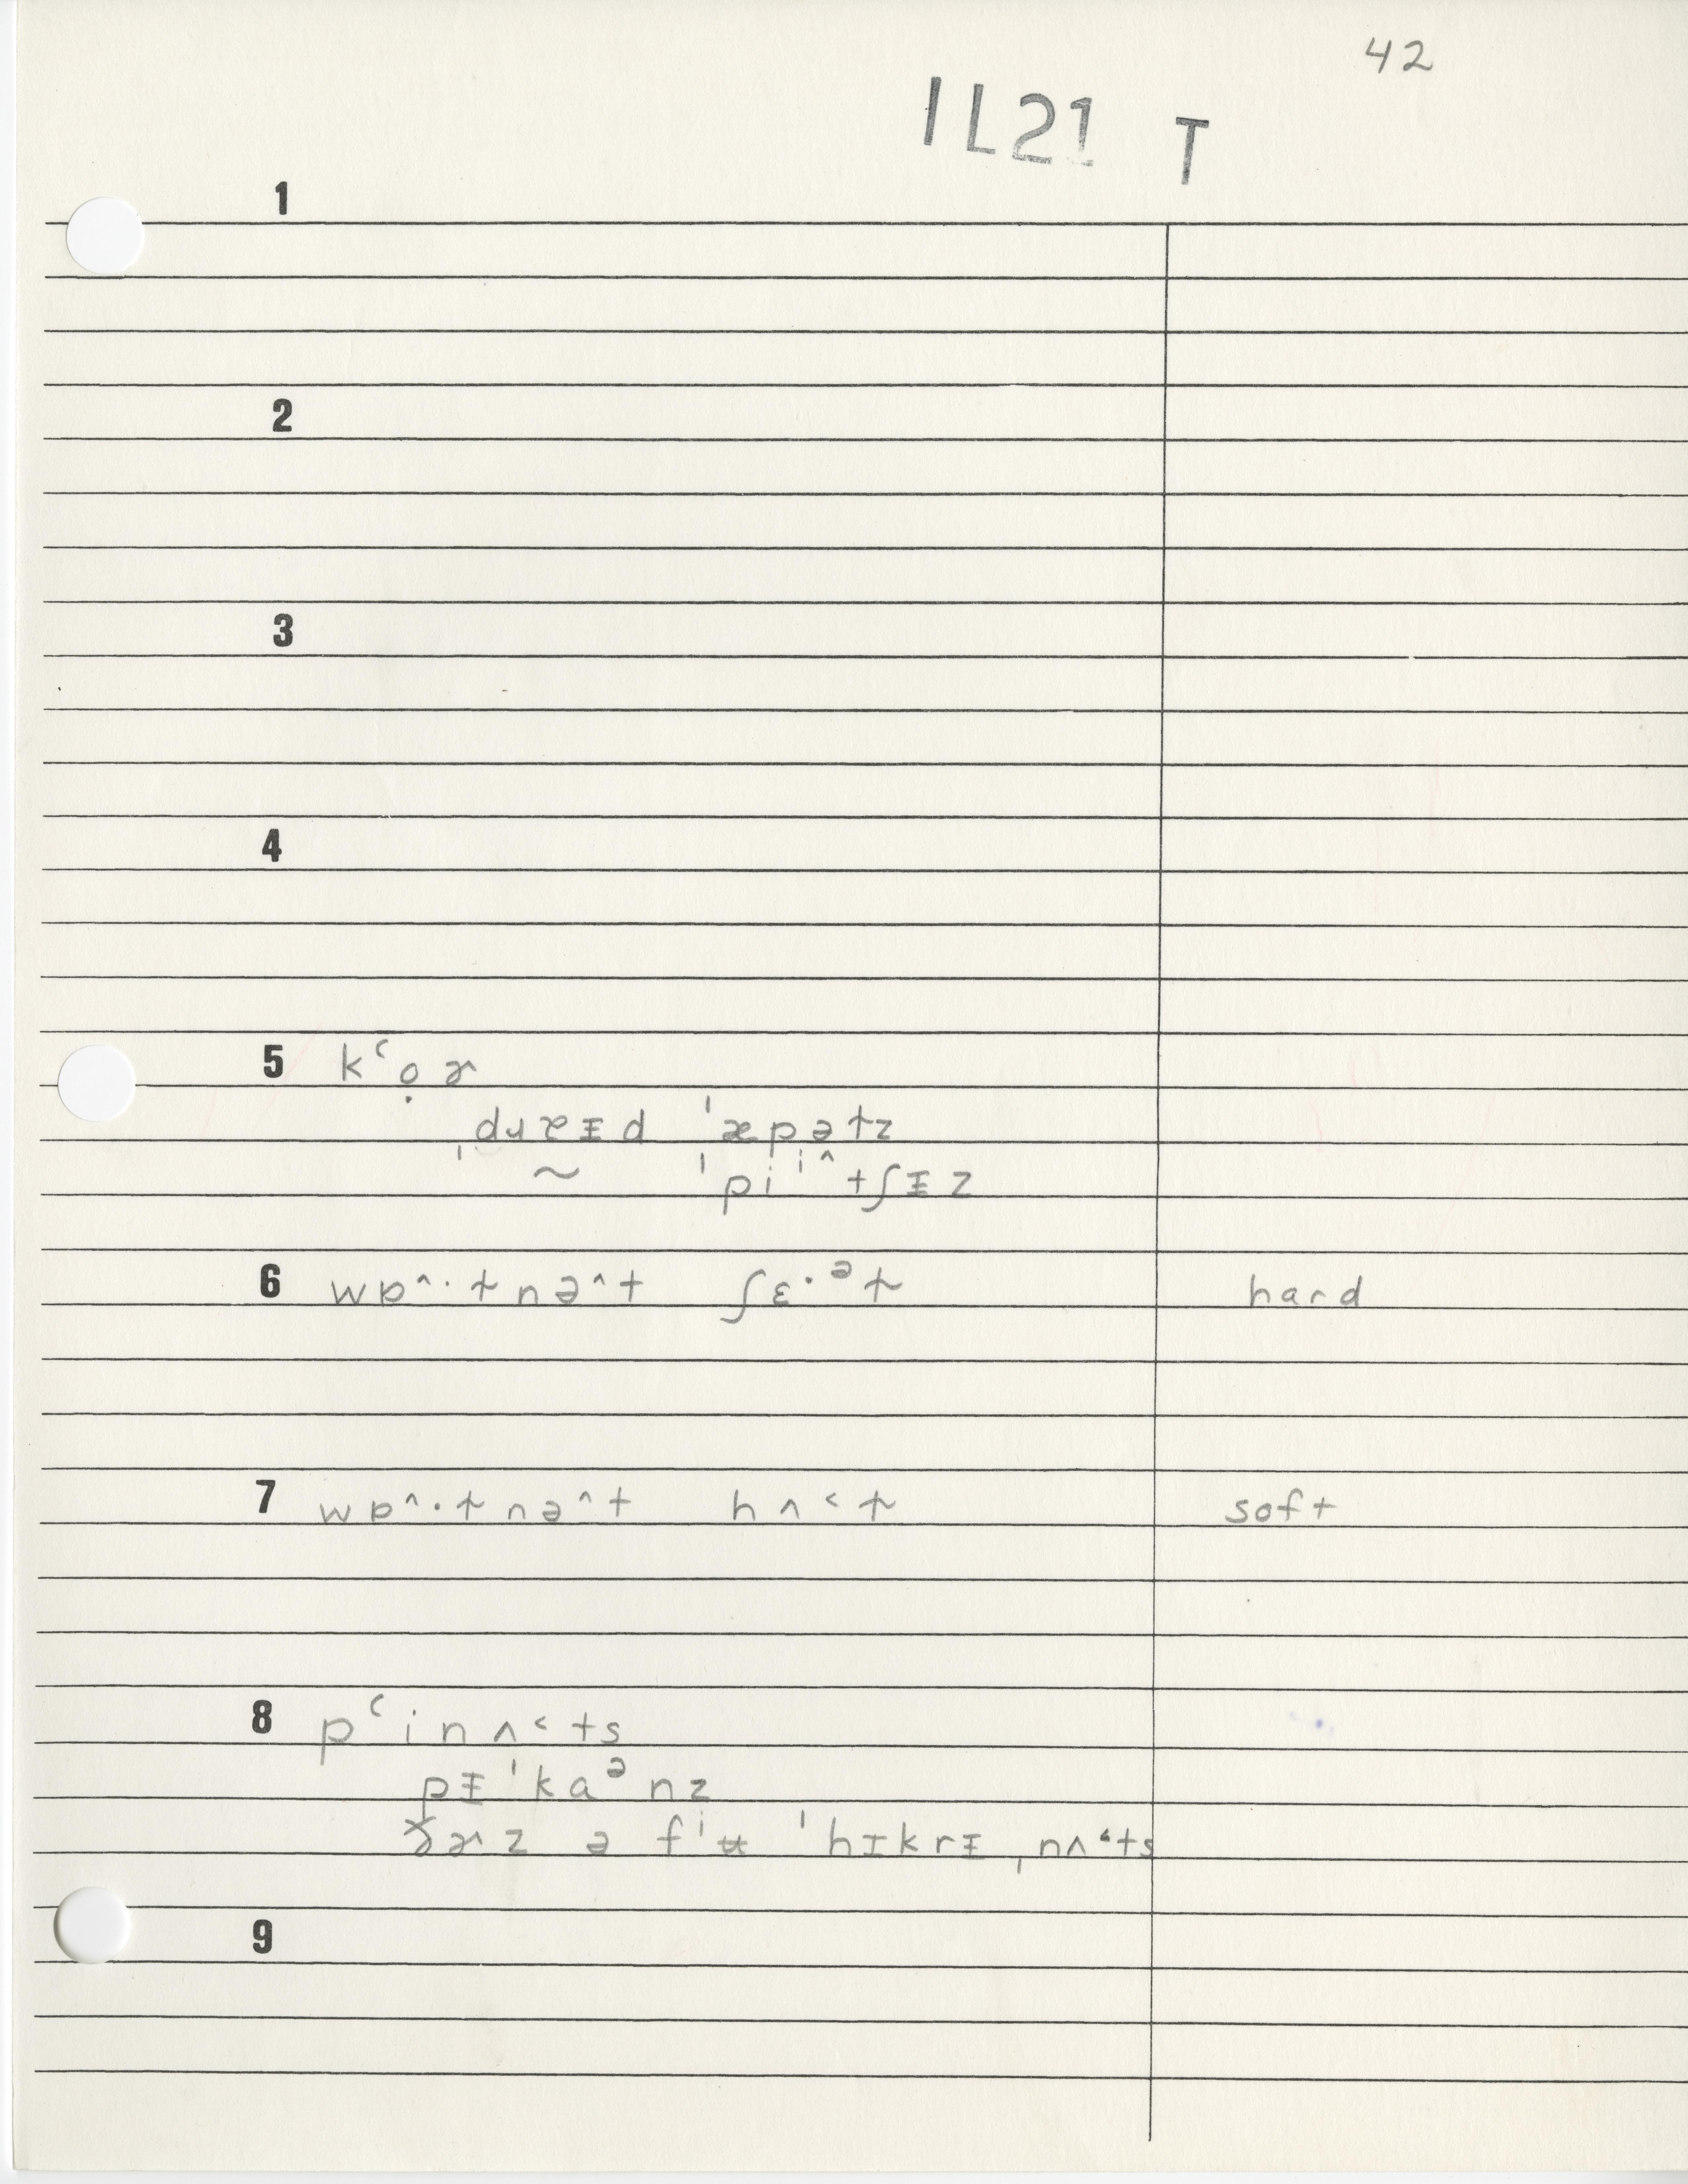 42
IL21 T
1
2
3
4
5 kʻọɚ
ˌdɹɚᵻd ˈæpətz
~ ˈpiⁱ^tʃᵻz
6 wɒ^·t nə^t ʃɛ·ᵊt hard
7 wɒ^·t nə^t hʌ˂t soft
8 pʻinʌ˂ts
pᵻˈkaᵊnz
ðɚz ə fⁱʉ ˈhɪkrᵻˌnʌ˂ts
9